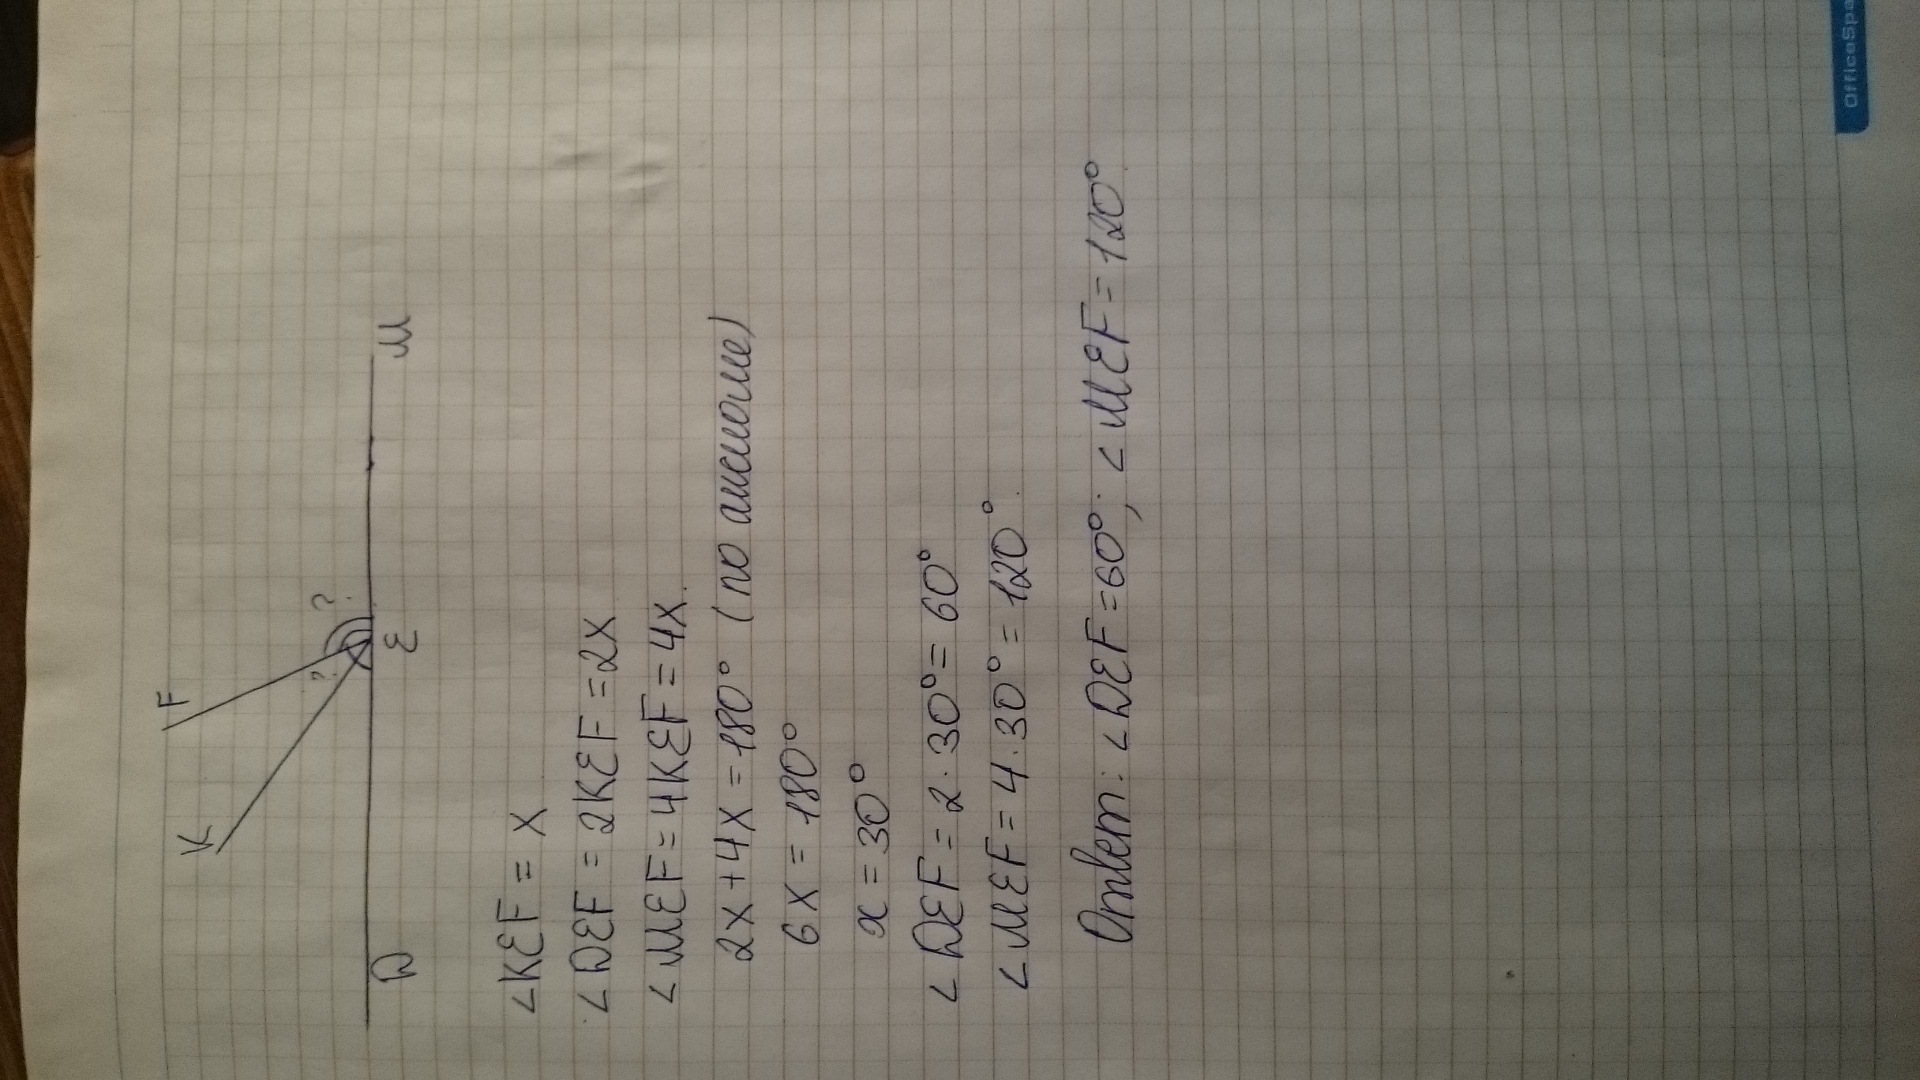 F
K
?
?
D
E
M
∠KEF = x
∠DEF = 2KEF = 2x
∠MEF = 4KEF = 4x.
2x + 4x = 180° (по аксиоме)
6x = 180°
x = 30°
∠DEF = 2 · 30° = 60°
∠MEF = 4 · 30° = 120°.
Ответ: ∠DEF = 60°; ∠MEF = 120°.
OfficeSpa